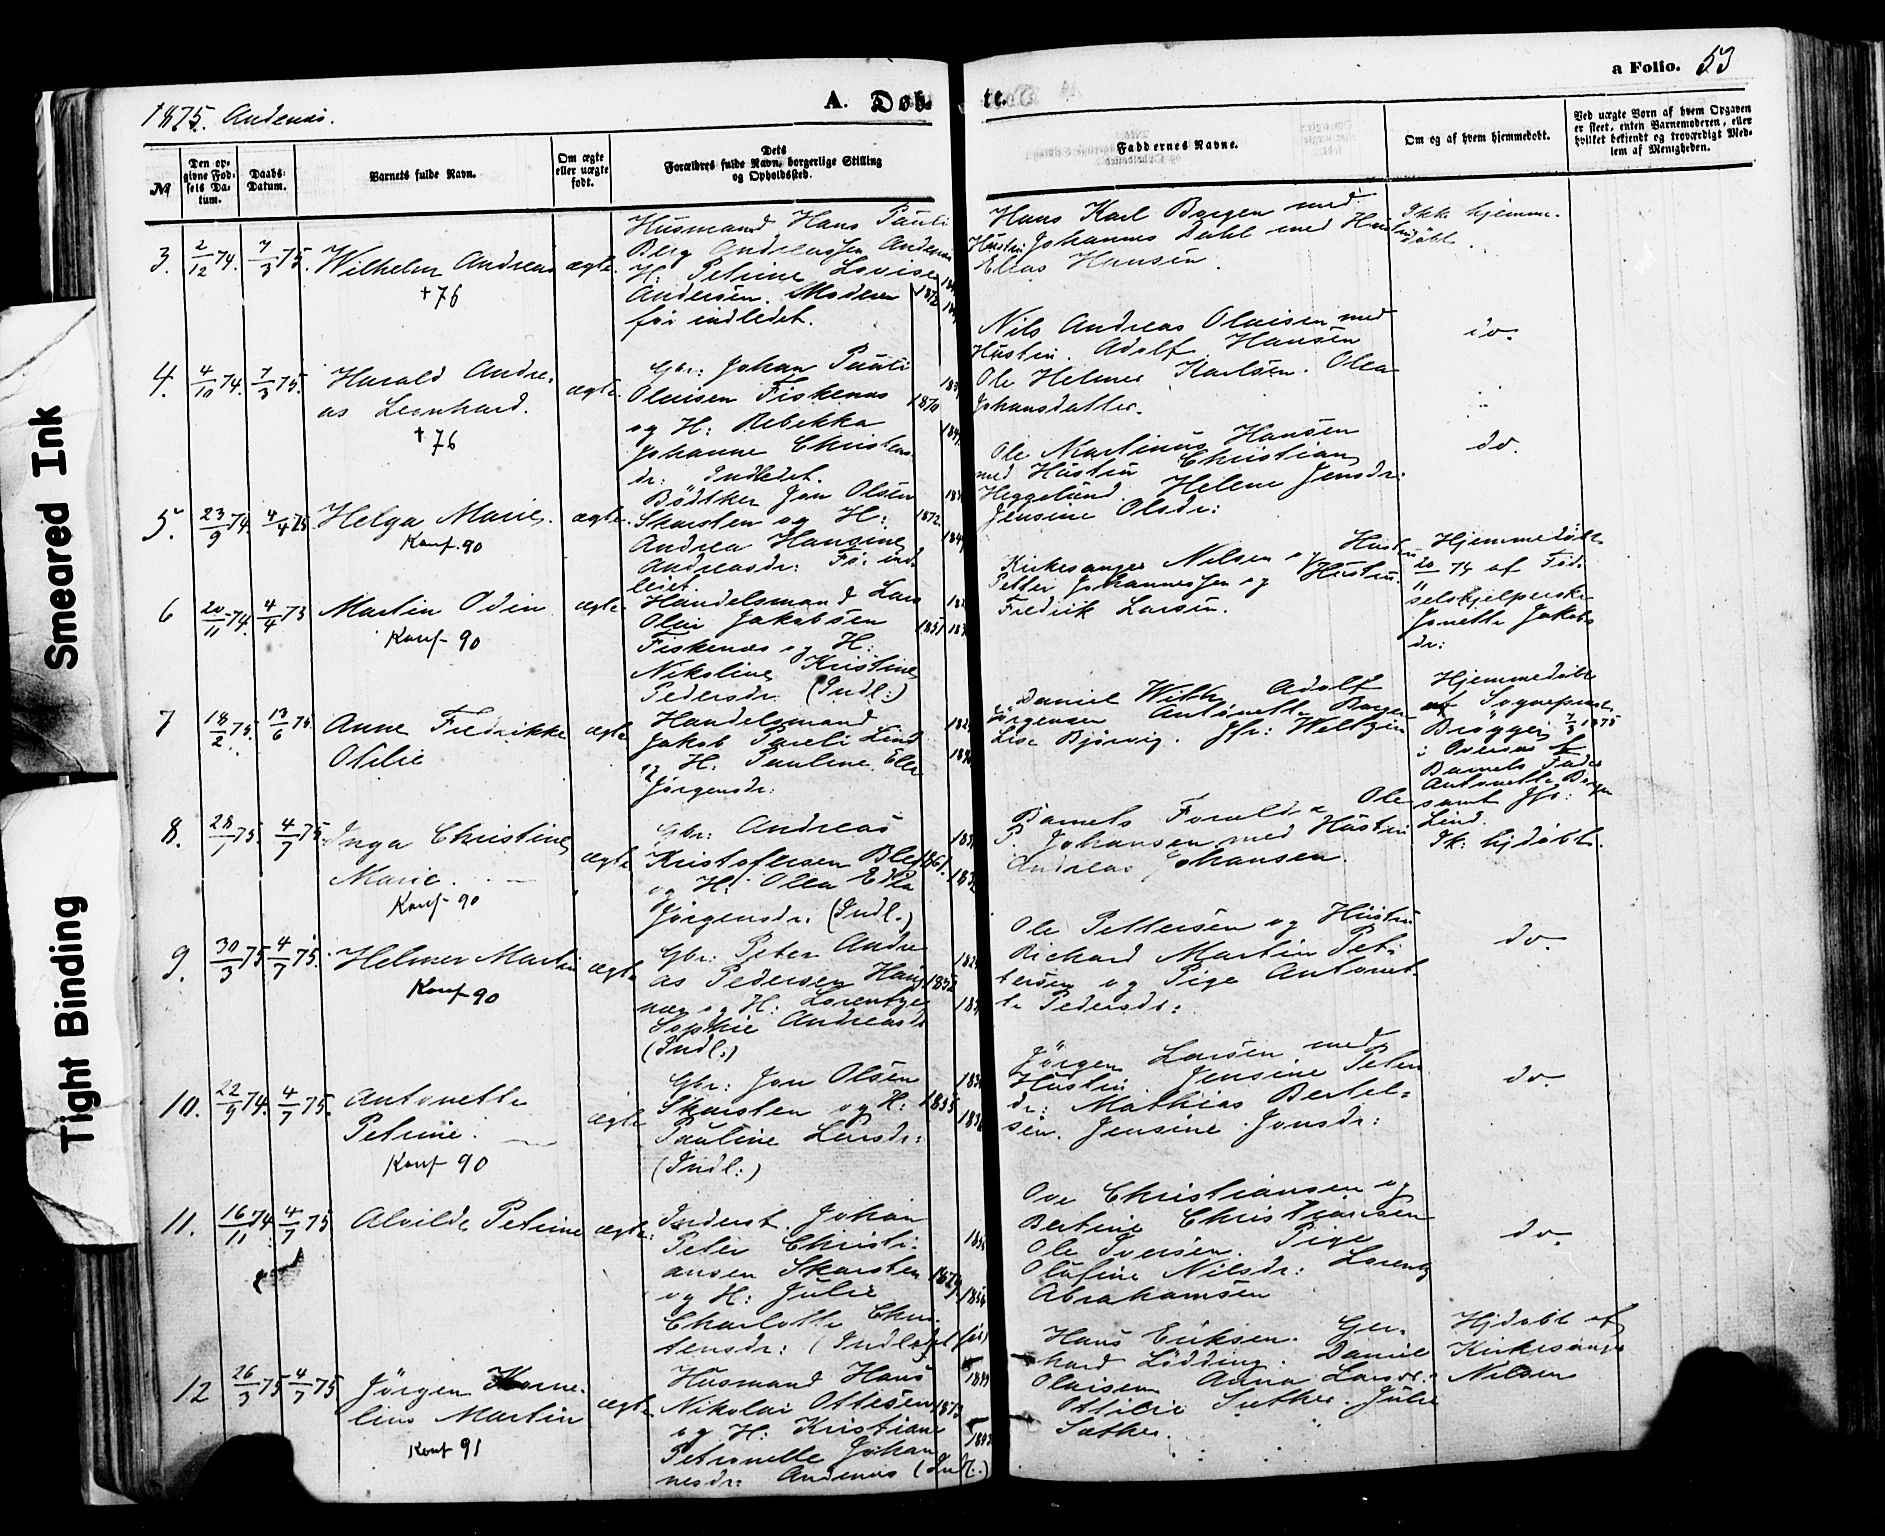 1875. Andenæs.
A. Døb-
te.
a Folio. 53
No
Den op-
givne Fød-
sels Da-
tum.
Daabs-
Datum.
Barnets fulde Navn.
Om ægte
eller uægte
født.
Dets
Forældres fulde Navn, borgerlige Stilling
og Opholdssted.
Faddernes Navne.
Om og af hvem hjemmedøbt.
Ved uægte Børn af hvem Opgaven
er skeet, enten Barnemoderen, eller
hvilket bekjendt og troværdigt Med-
lem af Menigheden.
3. 2/12 74. 7/3 75. Wilhelm Andreas ægte.
† 76
Husmand Hans Pauli
Berg Andreassen Andenæs
H: Petrine Lovise
Andersen. Moderen 1872
før indledet.
Hans Karl Borgen med
Hustru Johannes Dahl med Hustru
Elias Hansen.
Ikke hjemme-
døbt.
4. 4/10 74. 7/3 75. Harald Andre-
as Leonhard. ægte.
† 76
Gbr: Johan Pauli
Olaisen Fiskenæs 1870
og H: Rebekka
Johanne Christens-
dr: Indledet.
Nils Andreas Olaisen med
Hustru. Adolf Hansen
Ole Helmer Karlsen. Olea
Johansdatter.
do.
5. 23/9 74. 4/4 75 Helga Marie. ægte.
Konf. 90
Bødtker Jon Olsen
Skarsten og H: 1872
Andrea Hansine
Andreasdr: Før ind-
ledet.
Ole Martinus Hansen
med Hustru Christian
Heggelund. Helene Jensdr:
Jensine Olsdr:
do.
6 20/11 74. 4/4 75 Martin Odin ægte.
Konf- 90
Handelsmand Lars
Olai Jakobsen 1851
Fiskenæs og H:
Nikoline Kristine
Pedersdr. (Indl:)
Kirkesanger Nilsen og Hustru
Petter Johannessen og Hustru.
Fredrik Larsen.
Hjemmedøbt
20/11 74 af Fød-
selshjelperske
Jonette Jakobs-
dr:
7 18/2 75. 13/6 75 Anne Fredrikke
Otilie ægte
Handelsmand
Jakob Pauli Lind
og H. Pauline Ell
Jørgensdr:
Daniel With Adolf
Jørgensen Antonette Borgen
Lise Bjørvig. Jfr: Weltzin
Hjemmedøbt
af Sogneprest
Brøgger 7/3 1875
i Overvær af
Barnets Fader
Antonette Borgen
samt Jfr:
Lind.
8. 28/1 75. 4/7 75. Inga Christine
Marie. ægte
Konf- 90
Gbr: Andreas
Kristofersen Bleg 1861.
og H: Olea Edla
Jørgensdr. (Indl.)
Barnets Forældre Ole
P. Johansen med Hustru
Andreas Johansen.
Ik. hjdøbt.
9. 30/3 75 4/7 75. Helmer Martin ægte
Konf 90
Gbr: Peter Andre
as Pedersen Haug 1852
næs og H: Lorentze
Sophie Andreasdr
(Indl:)
Ole Pettersen og Hustru
Richard Martin Pet-
tersen og Pige Antonet-
te Pedersdr:
do.
10. 22/9 74. 4/7 75. Antonette
Petrine. ægte
Konf- 90
Gbr: Jon Olsen
Skarsten og H: 1855
Pauline Larsdr:
(Indl:)
Jørgen Larsen med
Hustru. Jensine Peter
dr: Mathias Bertel-
sen. Jensine Jonsdr:
do.
11. 16/11 74 4/7 75 Alvilde Petrine ægte:
Inderst. Johan
Peter Christi-
ansen Skarsten
og H: Julie
Charlotte Chris-
tensdr: (Indledet før)
Ove Christiansen og
Bertine Christiansen
Ole Iversen. Pige
Olufine Nilsdr: Lorentz
Abrahamsen
do.
12 26/3 75 4/7 75 Jørgen Korne-
lius Martin ægte
Konf 91
Husmand Hans
Nikolai Ottesen 1873
og H. Kristiane
Petronelle Johan
nesdr: Andenæs (Indl.)
Hans Eriksen. Ger-
hard Lødding. Daniel
Olaisen Anna Larsdr.
Ottilie Sæther. Julie
Sæther.
Hjdøbt af
Kirkesanger
Nilsen
Smeared Ink
Tight Binding